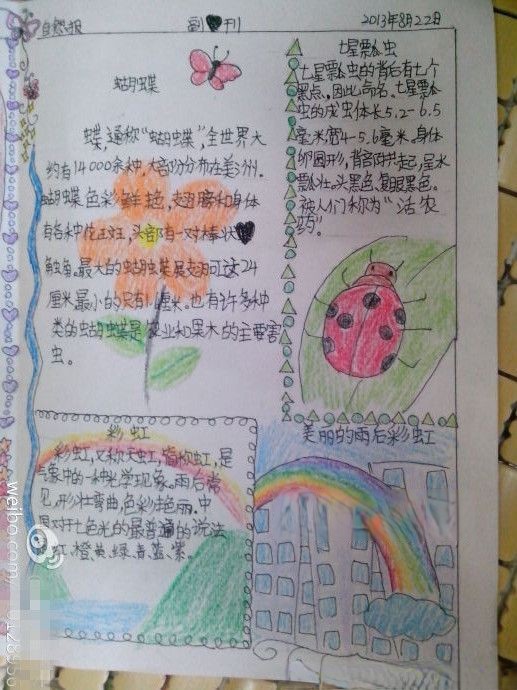 自然报
副刊
2013年8月22日
蝴蝶
蝶,通称“蝴蝶”,全世界大
约有14000余种,大部分分布在美洲.
蝴蝶色彩鲜艳,翅膀和身体
有各种花斑,头部有一对棒状
触角.最大的蝴蝶展翅可达24
厘米最小的只有1厘米.也有许多种
类的蝴蝶是农业和果木的主要害
虫。
七星瓢虫
七星瓢虫的背后有七个
黑点,因此命名.七星瓢
虫的成虫体长5.2-6.5
毫米宽4-5.6毫米.身体
卵圆形,背部拱起,呈水
瓢壮.头黑色.复眼黑色.
被人们称为“活农
药”。
彩虹
彩虹,又称天虹,简称虹,是
气象中的一种光学现象.雨后常
见,形壮弯曲,色彩艳丽.中
国对七色光的最普通的说法
红,橙,黄,绿,青,蓝,紫.
美丽的雨后彩虹
weibo.com